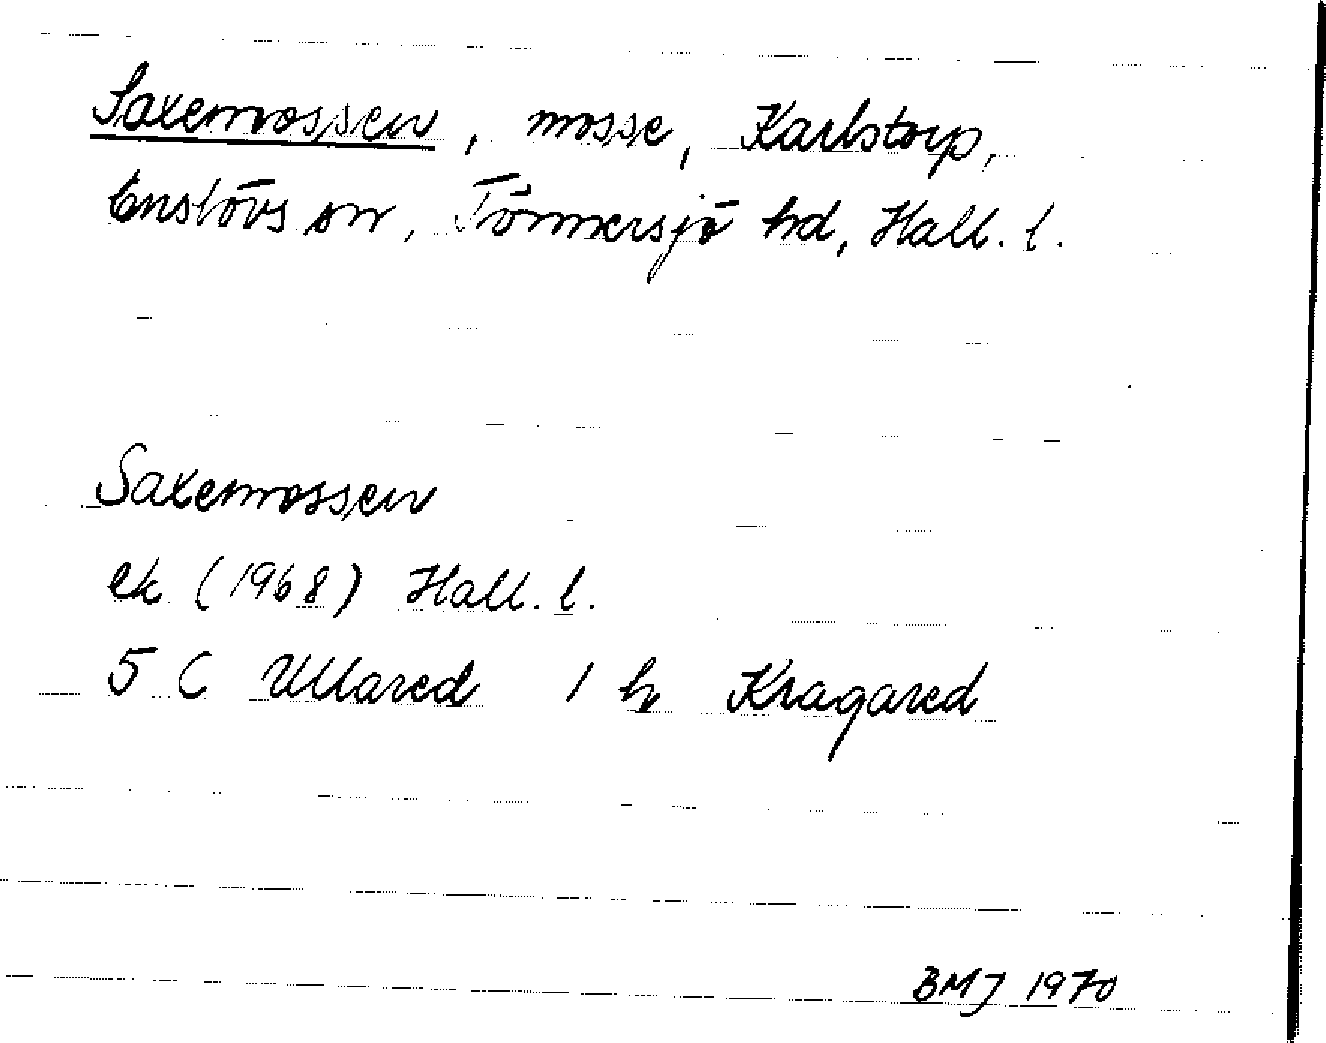 Saxemossen, mosse, Karlstorp,
Enslövs sn, Tönnersjö hd, Hall. l.
Saxemossen
ek (1968) Hall. l.
5 C Ullared 1 h Kragared
BMJ 1970